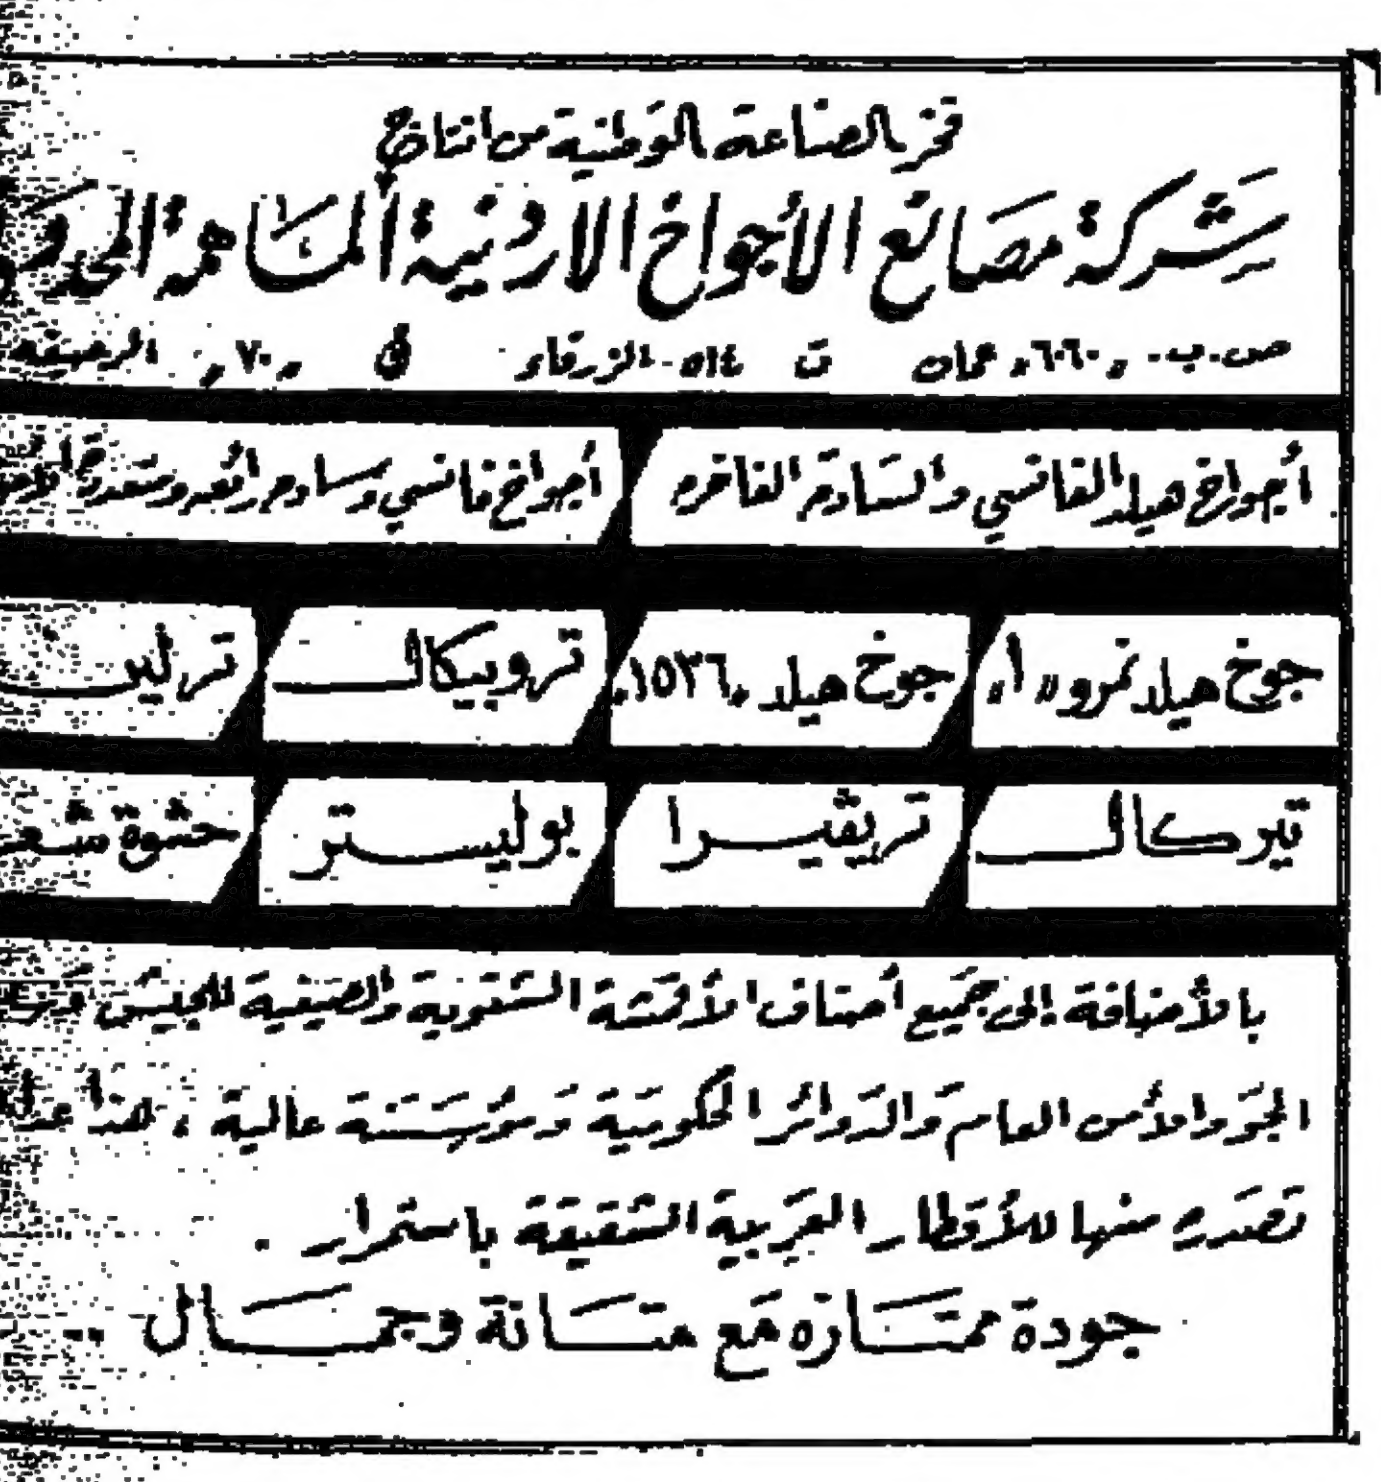 فخر الصناعة الوطنية من انتاج
شركة مصانع الأجواخ الاردنية المساهمة
ص.ب. «٦٠٦٠» عمان ت ٥١٤ - الزرقاء «٧٠» الرصيفه
أجواخ هيلد الفانسي والسادة الفاخره
أجواخ فانسي وساده رائعه ومتعددة
جوخ هيلد نمرو «١»
جوخ هيلد «١٥٣٦»
تروبيكال
ترلين
تيركال
تريفيرا
بوليستر
حشوة شعر
بالأضافة إلى جميع أصناف الأقمشة الشتوية والصيفية للجيش
الجو والأمن العام والدوائر الحكومية ومؤسسة عالية ، هذا عدا
تصدره منها للأقطار العربية الشقيقة باستمرار .
جودة ممتازه مع متانة وجمال